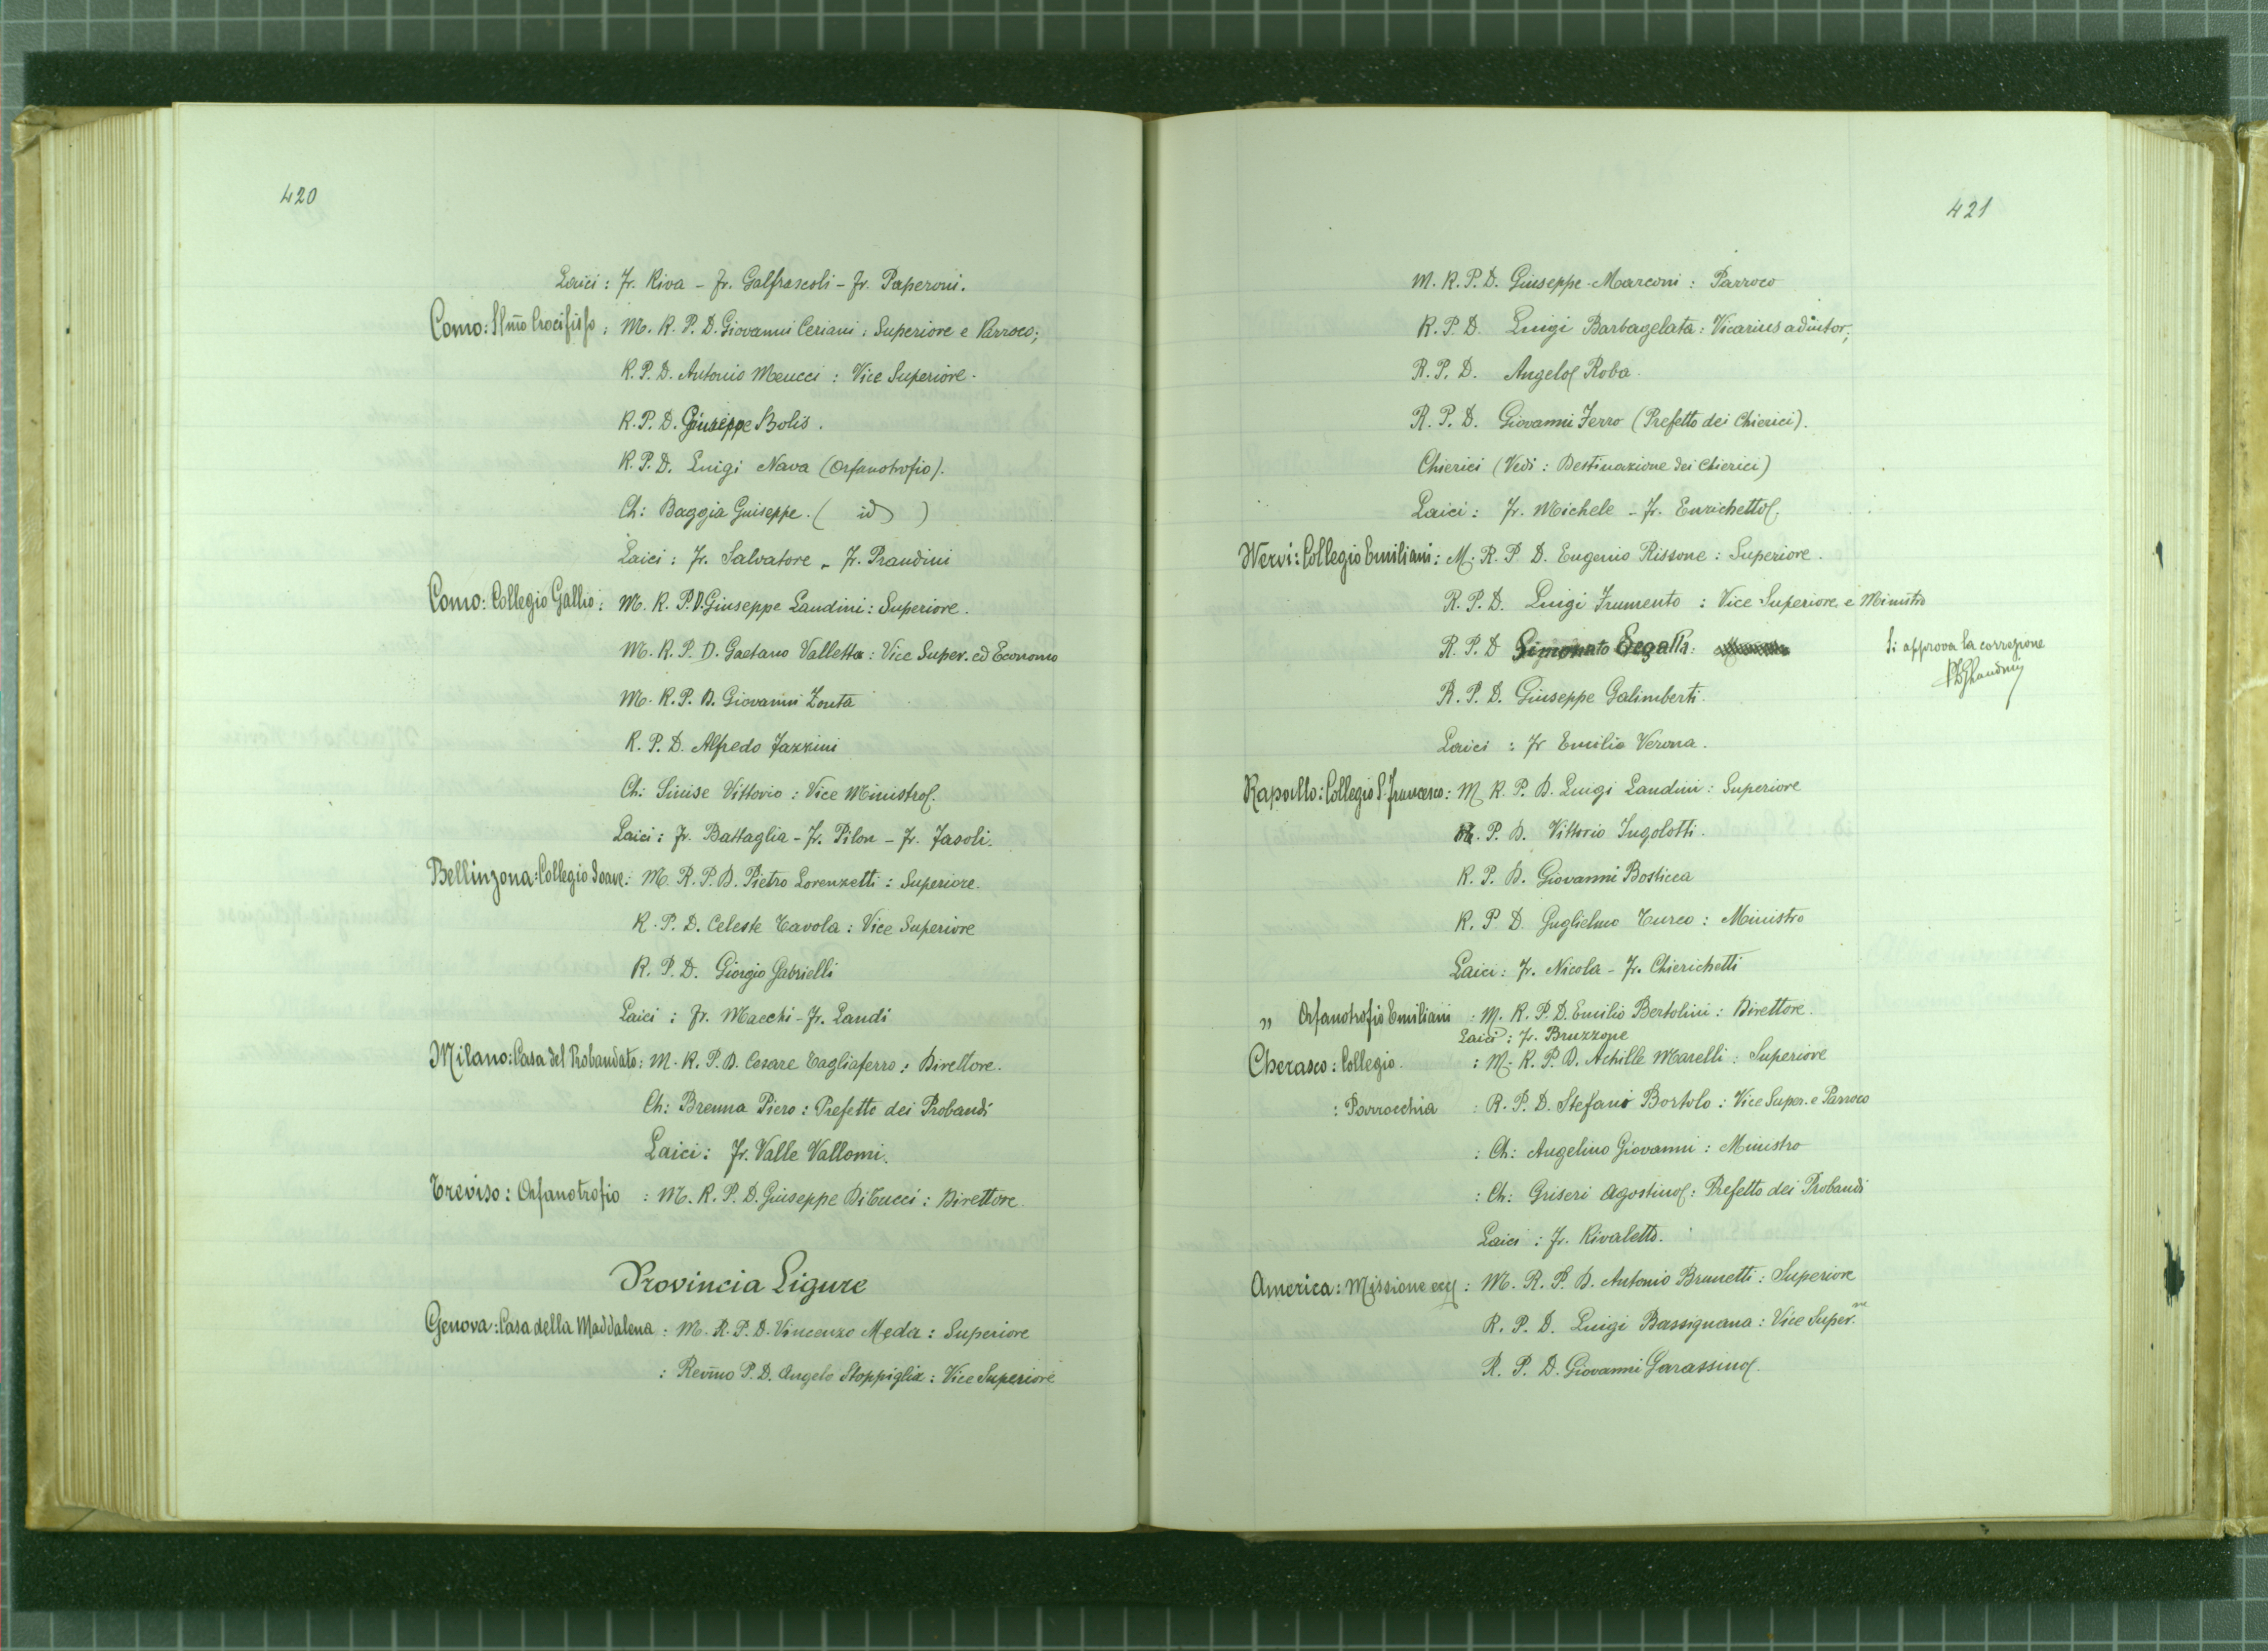 420
Laici: Fr. Riva - Fr. Galfrascoli - Fr. Paperoni.
Como: SS.mo Crocifisso: M. R. P. D. Giovanni Ceriani: Superiore e Parroco;
R. P. D. Antonio Meucci: Vice Superiore.
R. P. D. Giuseppe Bolis.
R. P. D. Luigi Nava (Orfanotrofio).
Ch: Baggia Guiseppe. ( id )
Laici: Fr. Salvatore - Fr. Prandini
Como: Collegio Gallio: M. R. P. D. Giuseppe Landini: Superiore.
M. R. P. D. Gaetano Valletta: Vice Super. ed Economo
M. R. P. D. Giovanni Zonta
R. P. D. Alfredo Fazzini
Ch: Sinise Vittorio: Vice Ministro.
Laici: Fr. Battaglia - Fr. Pilon - Fr. Fasoli.
Bellinzona: Collegio Soave: M. R. P. D. Pietro Lorenzetti: Superiore.
R. P. D. Celeste Tavola: Vice Superiore
R. P. D. Giorgio Gabrielli
Laici: Fr. Macchi - Fr. Landi
Milano: Casa del Probandato: M. R. P. D. Cesare Tagliaferro: Direttore.
Ch: Brenna Piero: Prefetto dei Probandi
Laici: Fr. Valle Vallomi.
Treviso: Orfanotrofio: M. R. P. D. Giuseppe Di Tucci: Direttore.
Provincia Ligure
Genova: Casa della Maddalena: M. R. P. D. Vincenzo Meda: Superiore
: Rev̅mo P. D. Angelo Stoppiglia: Vice Superiore
421
M. R. P. D. Giuseppe Marconi: Parroco
R. P. D. Luigi Barbagelata: Vicarius adiutor;
R. P. D. Angelo Roba.
R. P. D. Giovanni Ferro (Prefetto dei Chierici).
Chierici (Vedi: Destinazione dei Chierici)
Laici: Fr. Michele - Fr. Enrichetto.
Nervi: Collegio Emiliani: M. R. P. D. Eugenio Rissone: Superiore.
R. P. D. Luigi Frumento: Vice Superiore, e Ministro
R. P. D Simonato Segalla. Si approva la correzione
R. P. D. Giuseppe Galimberti.
Laici: Fr Emilio Verona.
Rapallo: Collegio S. Francesco: M R. P. D. Luigi Landini: Superiore
R. P. D. Vittorio Ingolotti.
R. P. D. Giovanni Bosticca
R. P D. Guglielmo Turco: Ministro
Laici: Fr. Nicola - Fr. Chierichetti
" Orfanotrofio Emiliani: M. R. P. D. Emilio Bertolini: Direttore.
Laici: Fr. Bruzzone
Cherasco: Collegio. : M. R. P. D. Achille Marelli: Superiore
: Parrocchia: R. P. D. Stefani Bortolo: Vice Super. e Parroco
: Ch: Angelino Giovanni: Ministro
: Ch: Griseri Agostino: Prefetto dei Probandi
Laici: Fr. Rivaletto.
America: Missione ecc: M. R. P. D. Antonio Brunetti: Superiore
R. P. D. Luigi Bassignana: Vice Super.re
R. P. D. Giovanni Garassino.